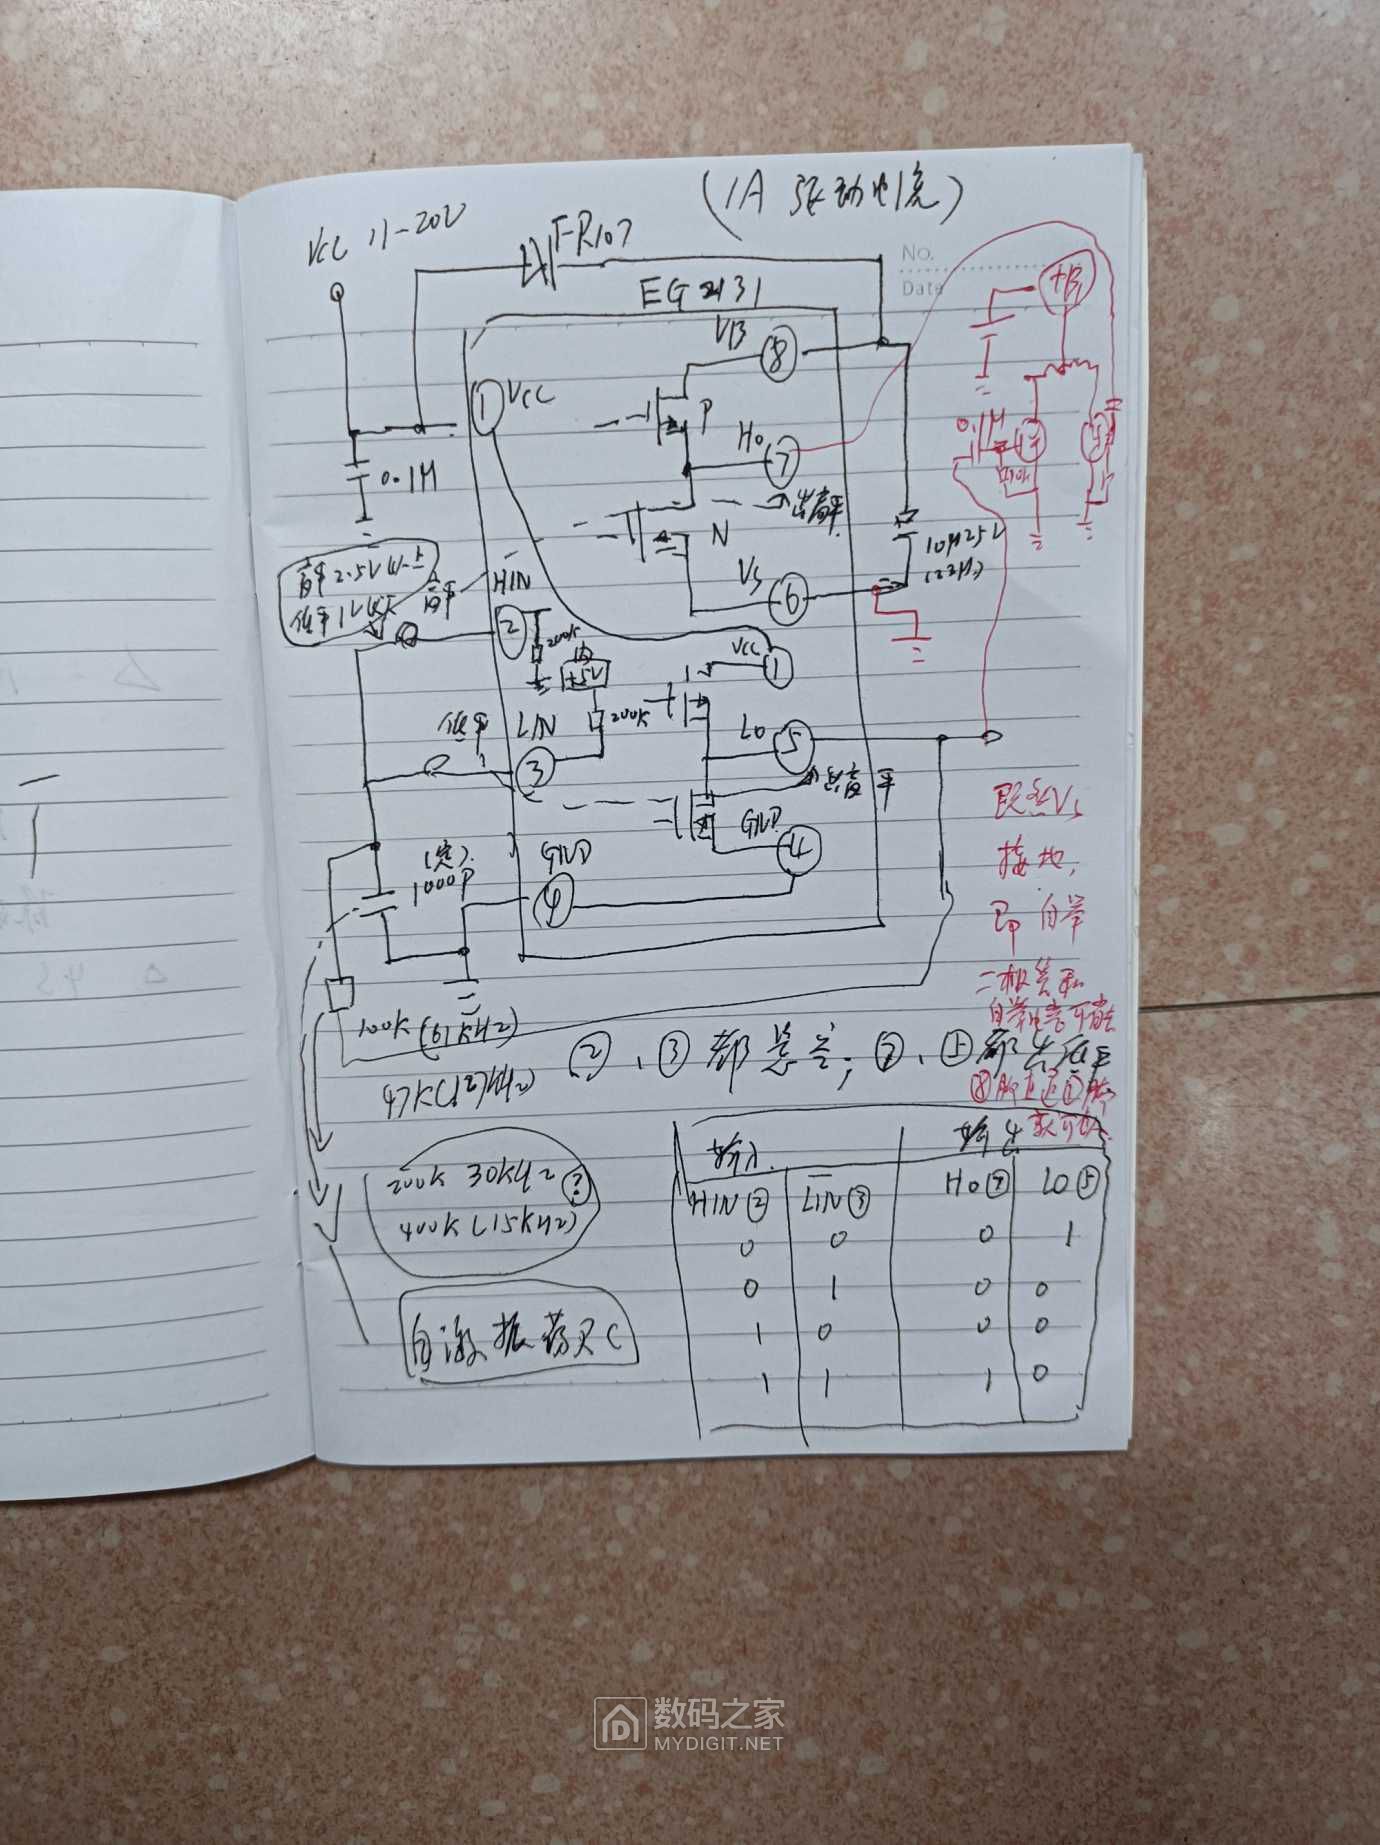 (1A 驱动电流)
VCC 11-20V
FR107
No.
Date
EG2131
+B
VB
⑧
① VCC
P
Ho
⑦
0.1M
0.1M
出高平
N
10μ25V
(22μ)
高平2.5V以上
低平1V以下
高平
HIN
Vs
⑥
②
200K
内
+5V
VCC
①
200K
低平
LIN
③
LO
⑤
出高平
既然Vs
接地,
即自举
二极管和
自举电容可省去
⑧脚直连①脚
就可以
GND
④
(定)
1000P
GND
④
100K (61KHz)
47K (127KHz)
②、③都悬空；⑦、⑤都出低平
200K 30KHz ?
400K (15KHz)
自激振荡RC
输入
输出
HIN② LIN③ Ho⑦ LO⑤
0 0 0 1
0 1 0 0
1 0 0 0
1 1 1 0
数码之家
MYDIGIT.NET